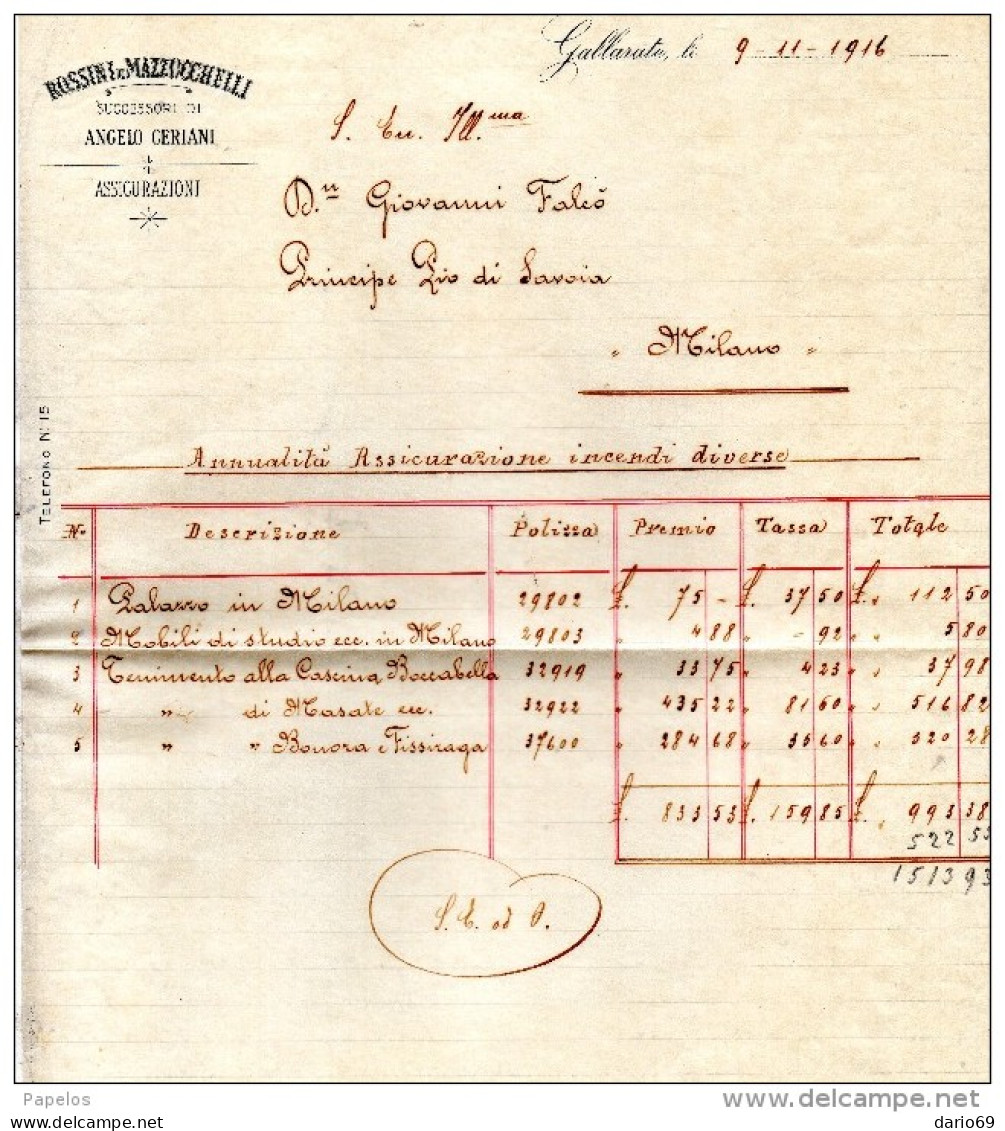 ROSSINI e MAZZUCCHELLI
SUCCESSORI DI
ANGELO CERIANI
ASSICURAZIONI
Gallarate, li 9-11-1916
S. Ecc. Ill.ma
D.n Giovanni Falcò
Principe Pio di Savoia
" Milano "
TELEFONO N. 15
Annualità Assicurazione incendi diverse
No Descrizione Polizza Premio Tassa Totale
1 Palazzo in Milano 29802 £. 75 - £. 37 50 £. " 112 50
2 Mobili di studio ecc. in Milano 29803 " 4 88 " - 92 " " 5 80
3 Tenimento alla Cascina Boccabella 32919 " 33 75 " 4 23 " " 37 98
4 " " di Masate ecc. 32922 " 435 22 " 81 60 " " 516 82
5 " " Bonora e Fissiraga 37600 " 284 68 " 35 60 " " 320 28
£. 833 53 £. 159 85 £. " 993 38
522 55
1513 93
S. E. od O.
Papelos
www.delcampe.net
dario69